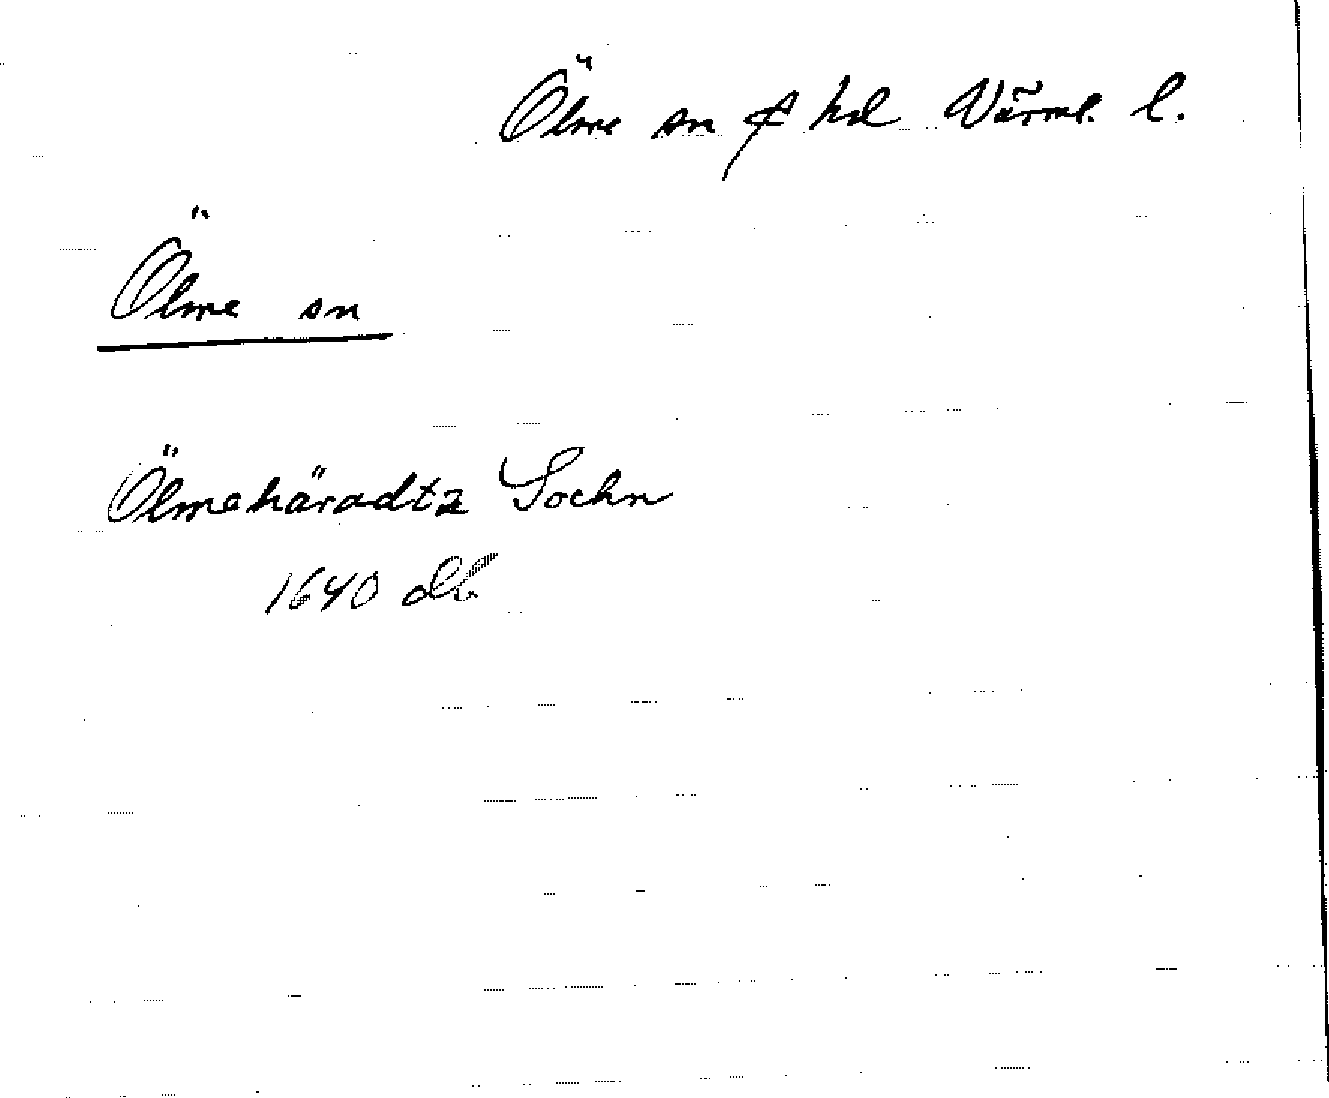 Ölme sn o hd Värml. l.
Ölme sn
Ölmehäradtz Sochn
1640 db